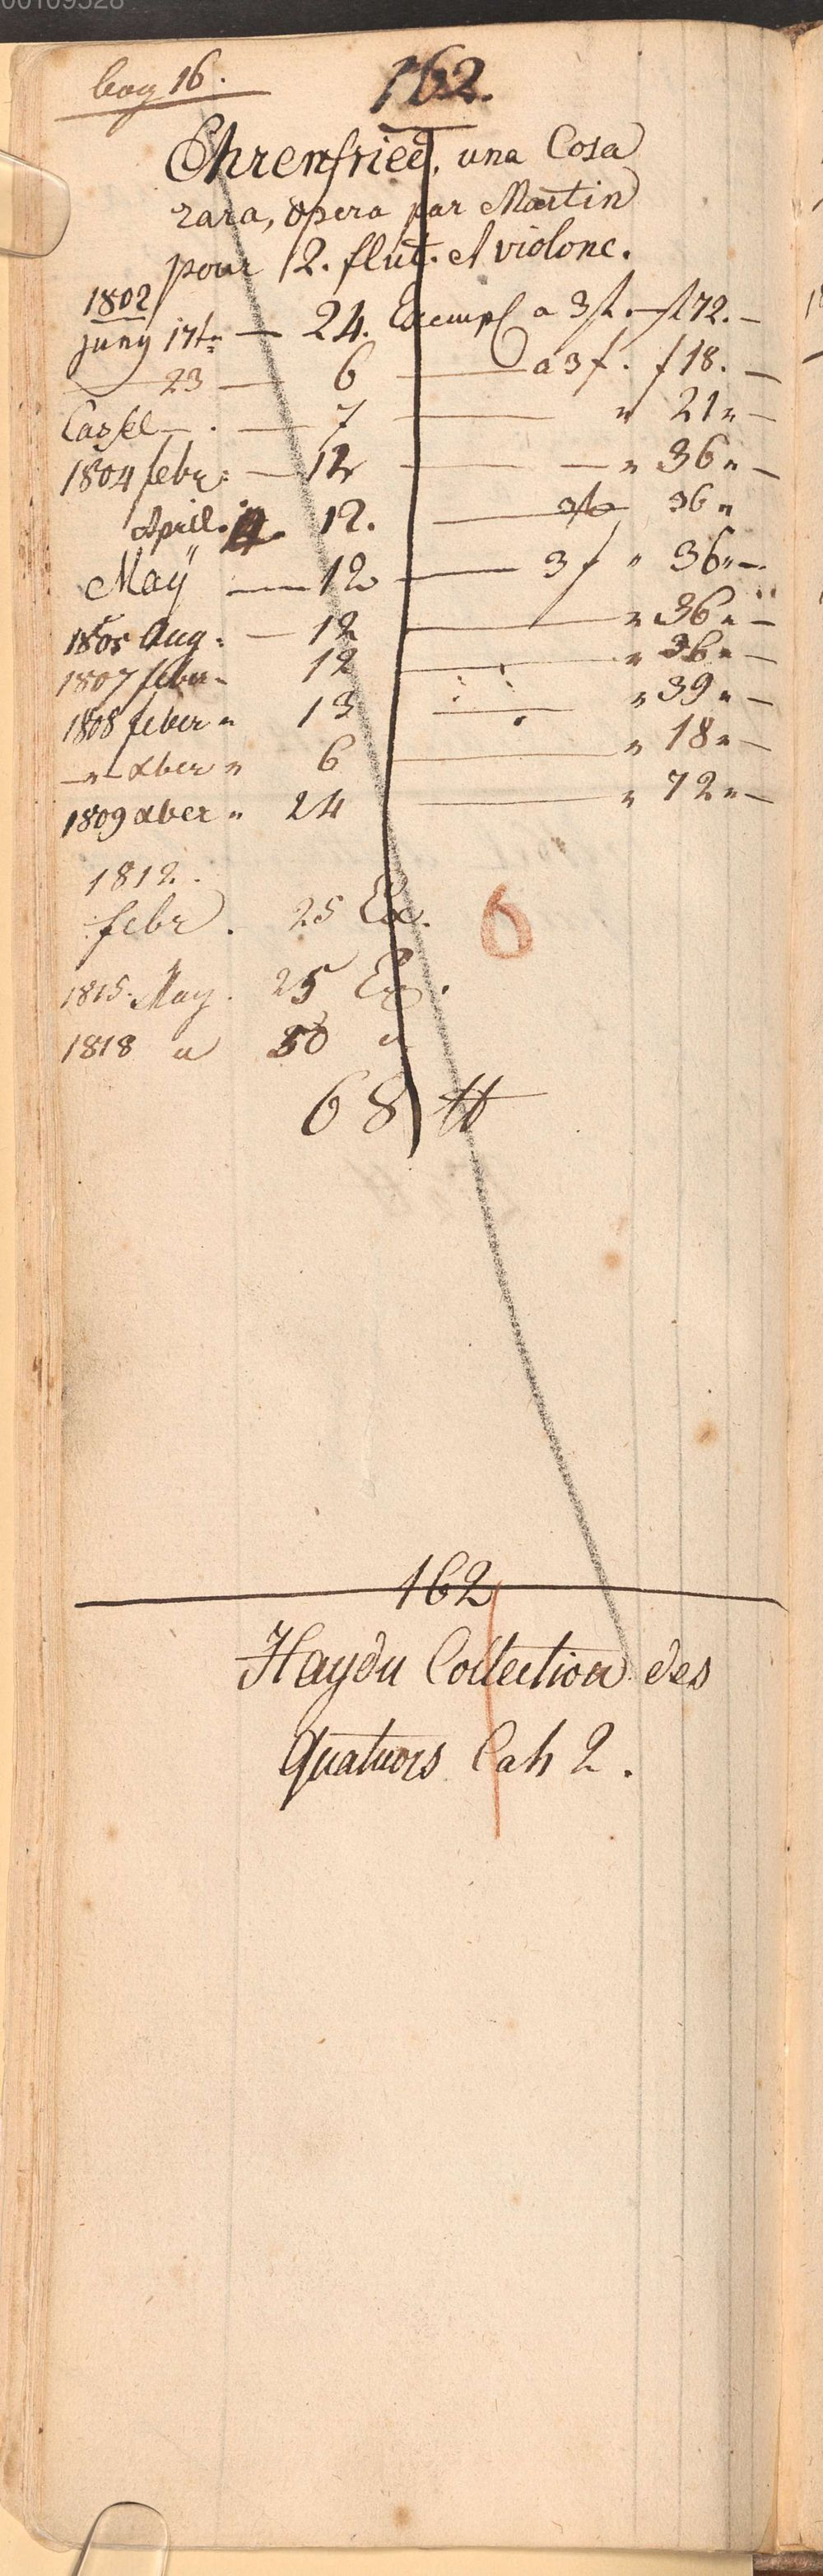 00109528
bog 16.
162.
Ehrenfried, una Cosa
rara, opera par Martin
pour 2. flut. et violonc.
1802
juny 17tn — 24. Exempl a 3f. — f 72. —
— 23 — 6 — a 3f. f 18. —
Cassel — . — 7 — " 21 " —
1804 febr: — 12 — — " 36 " —
April. 12. — 3f 36 "
May — 12 — 3f " 36 " —
1805 Aug. — 12 — " 36 " —
1807 febr " 12 — " 36 " —
1808 feber " 13 — " 39 " —
— " — xber " 6 — " 18 " —
1809 xber " 24 — " 72 " —
1812.
febr. 25 Ex. 6
1815. May. 25 Ex.
1818 " 50 "
68 ℔
162
Haydn Collection des
Quatuors Cah 2.